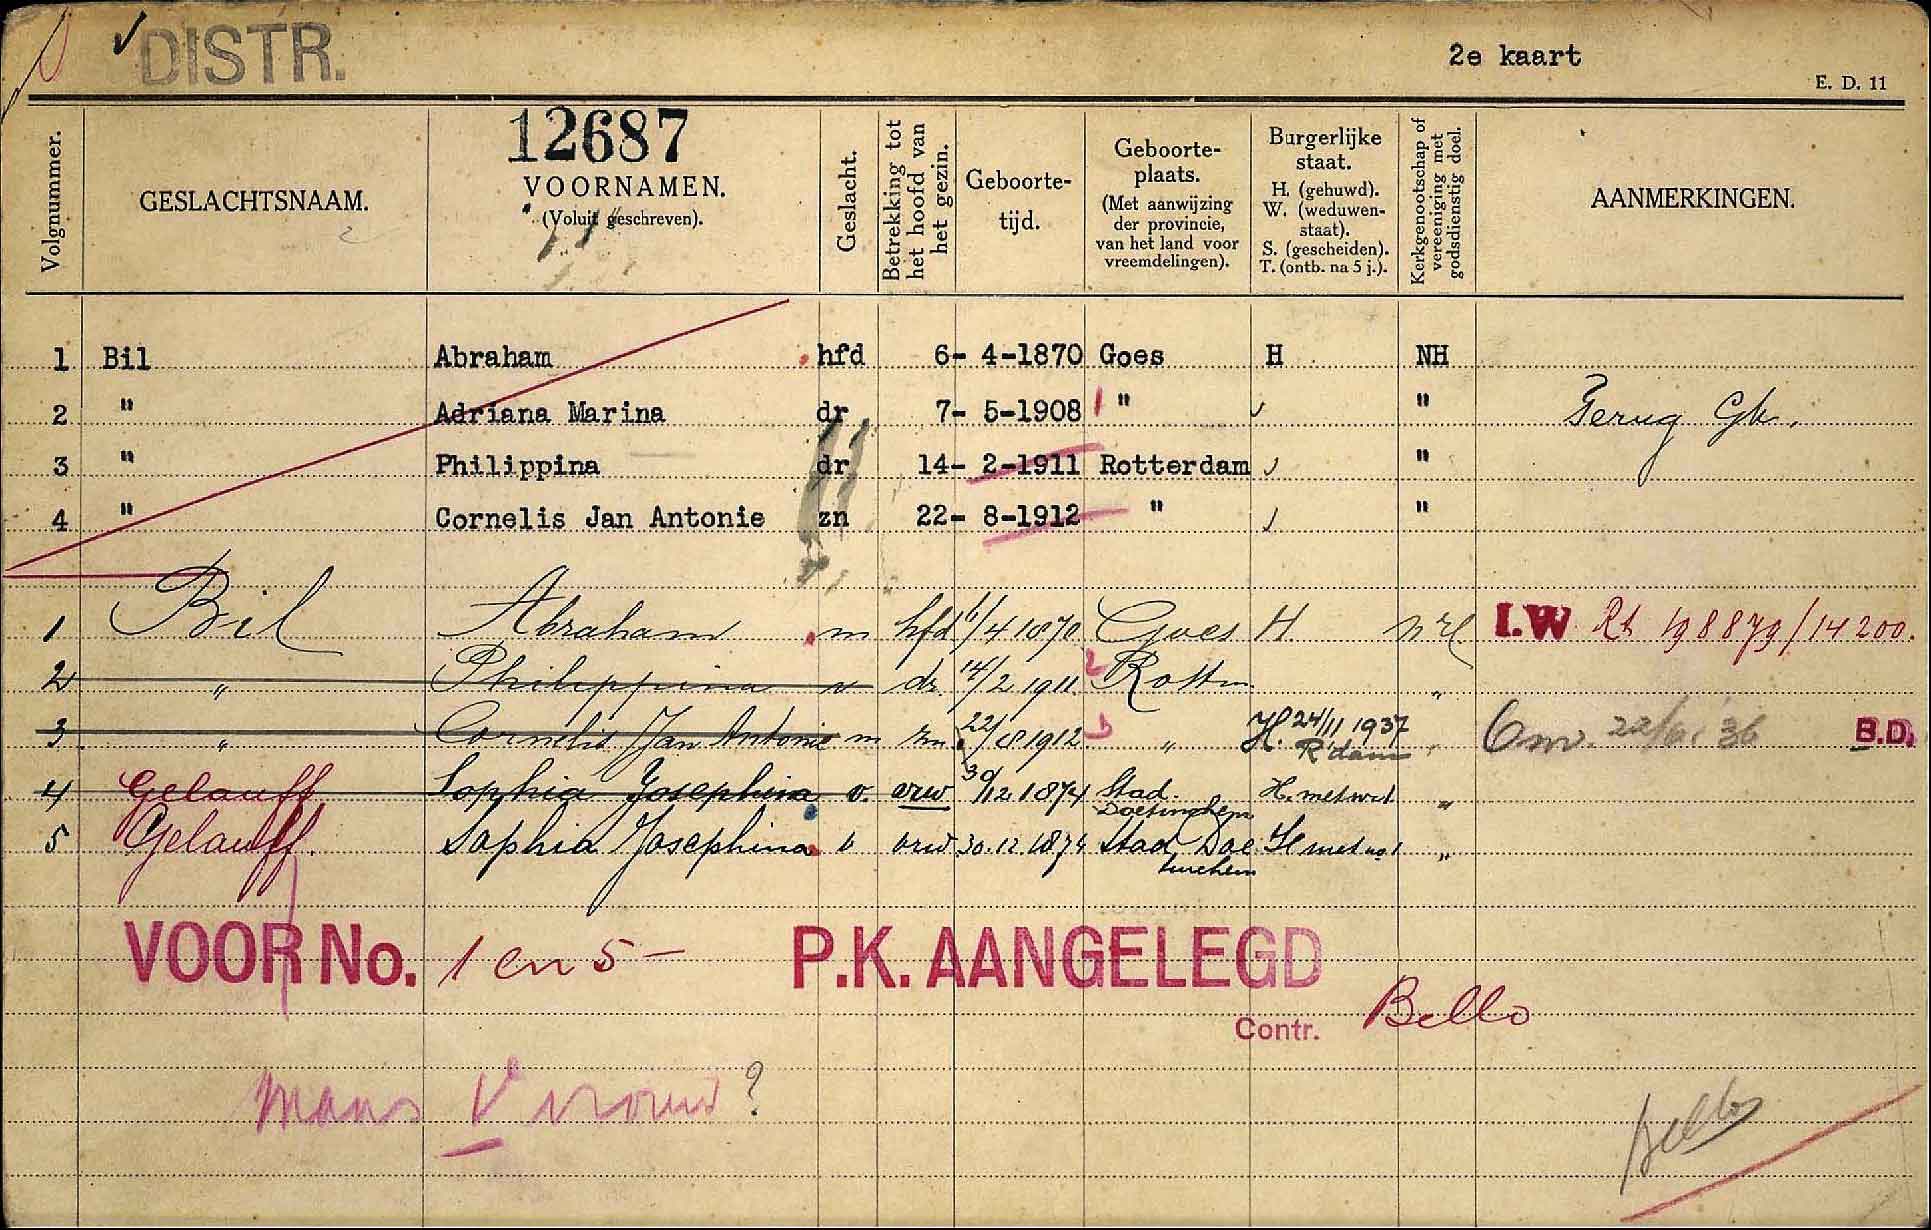 DISTR.
2e kaart
E. D. 11
12687
Volgnummer.
GESLACHTSNAAM.
VOORNAMEN.
(Voluit geschreven).
Geslacht.
Betrekking tot
het hoofd van
het gezin.
Geboorte-
tijd.
Geboorte-
plaats.
(Met aanwijzing
der provincie,
van het land voor
vreemdelingen).
Burgerlijke
staat.
H. (gehuwd).
W. (weduwen-
staat).
S. (gescheiden).
T. (ontb. na 5 j.).
Kerkgenootschap of
vereeniging met
godsdienstig doel.
AANMERKINGEN.
1 Bil Abraham hfd 6- 4-1870 Goes H NH
2 " Adriana Marina dr 7- 5-1908 " "
Terug Gk.
3 " Philippina dr 14- 2-1911 Rotterdam "
4 " Cornelis Jan Antonie zn 22- 8-1912 " "
1 Bil Abraham m hfd 6/4 1870 Goes H. NH. I.W Rt 198879/14200.
2 " Philippina v dr 14/2 1911 Rottm "
3 " Cornelis Jan Antonie m zn. 22/8 1912 " H. 24/11 1937 R'dam " B.D.
4 Gelauff Sophia Josephina v. vrw 30/12 1874 Stad Doetinchem H. met no 1 "
5 Gelauff. Sophia Josephina v vrw 30.12.1874 Stad Doetinchem H met no 1 "
VOOR No. 1 en 5 - P.K. AANGELEGD
Contr. Bello
mans vrouw?
Bello